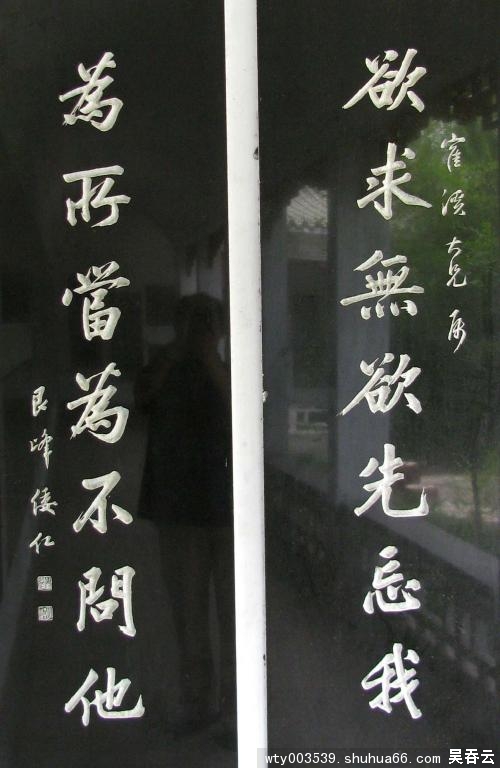 欲求無欲先忘我
寉溪大兄 属
為所當為不問他
艮峰倭仁
wty003539. shuhua66. com 吴吞云